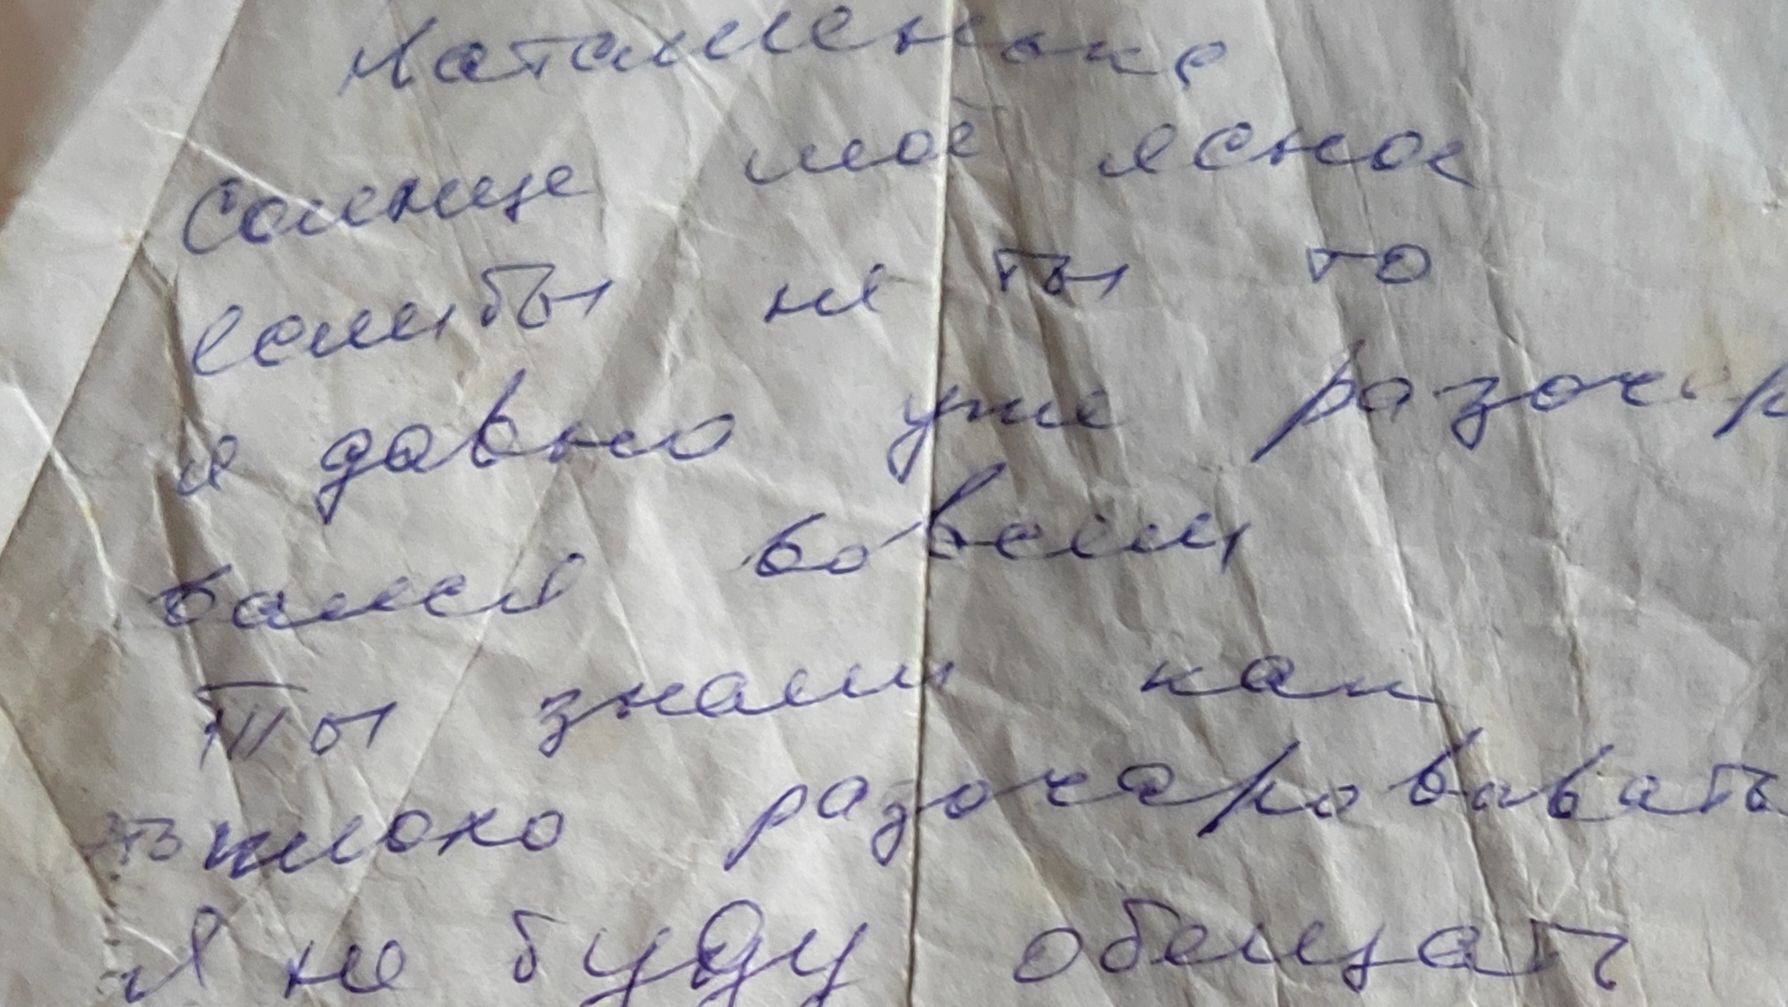 Наташеньке
Солнце моё ясное
еслибы не ты то
я давно уже разочер
вался вовсем
Ты знаеш как
плохо разочаровывать
Я не буду обещать